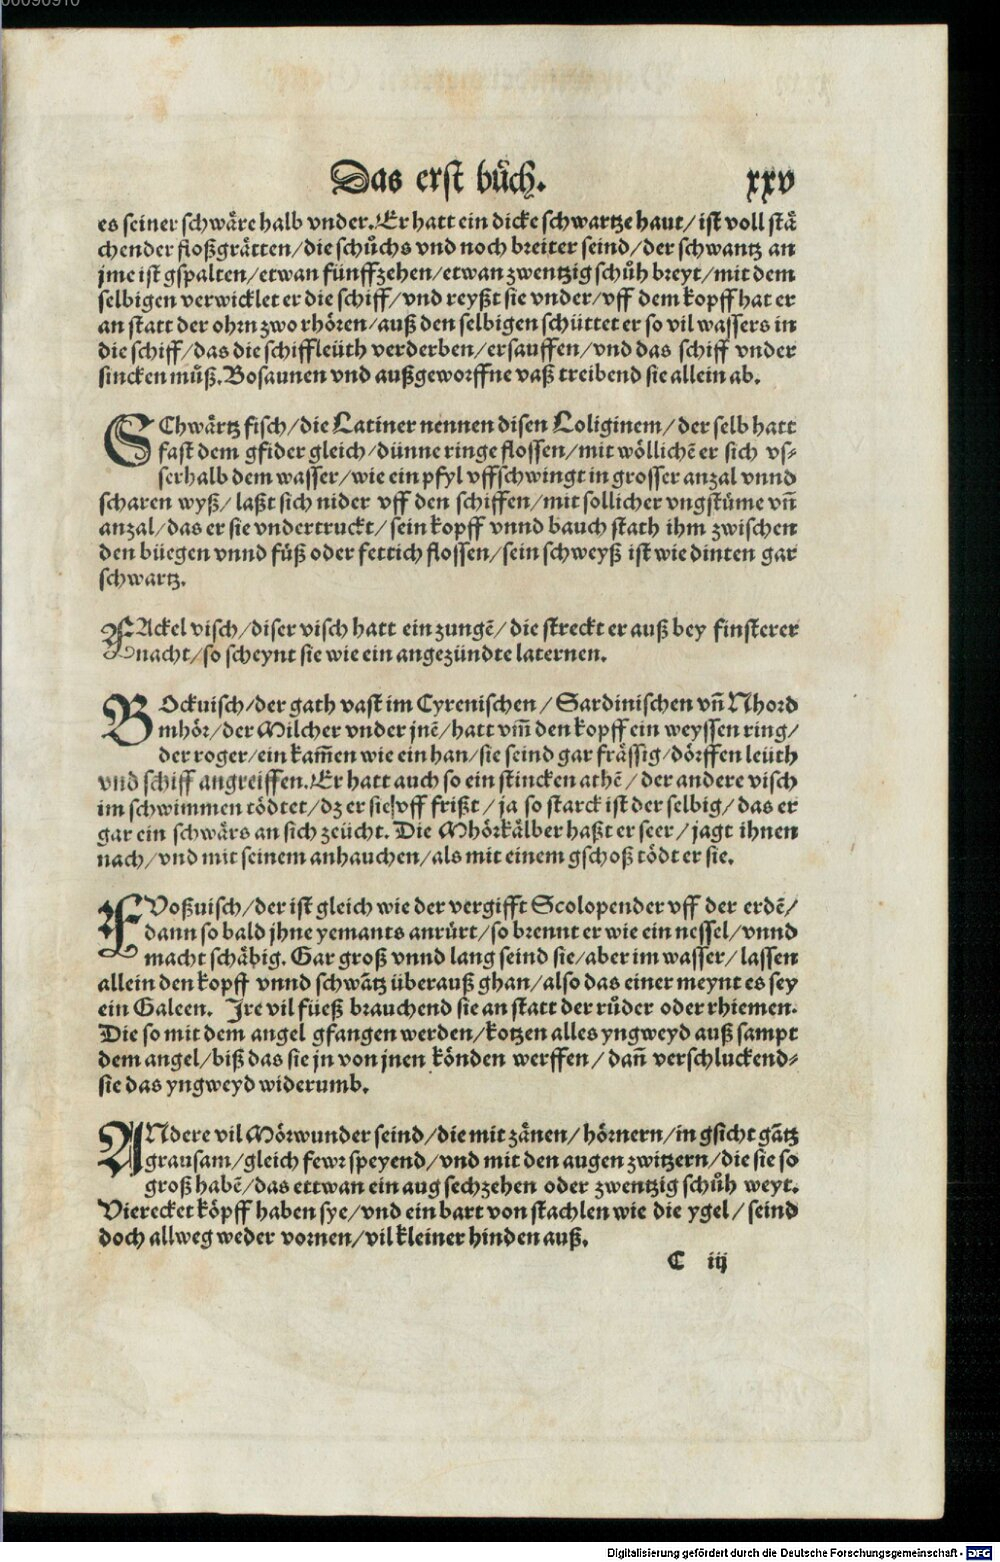 00090910
Das erst bůch. xxv
es seiner schwäre halb vnder. Er hatt ein dicke schwartze haut/ ist voll stä
chender floßgrätten/ die schůchs vnd noch breiter seind/ der schwantz an
jme ist gspalten/ etwan fünffzehen/ etwan zwentzig schůh breyt/ mit dem
selbigen verwicklet er die schiff/ vnd reyßt sie vnder/ vff dem kopff hat er
an statt der ohrn zwo rhören/ auß den selbigen schüttet er so vil wassers in
die schiff/ das die schiffleüth verderben/ ersauffen/ vnd das schiff vnder
sincken můß. Bosaunen vnd außgeworffne vaß treibend sie allein ab.
SChwärtz fisch/ die Latiner nennen disen Loliginem/ der selb hatt
fast dem gfider gleich/ dünne ringe flossen/ mit wöllichē er sich vs-
serhalb dem wasser/ wie ein pfyl vffschwingt in grosser anzal vnnd
scharen wyß/ laßt sich nider vff den schiffen/ mit sollicher vngstüme vñ
anzal/ das er sie vndertruckt/ sein kopff vnnd bauch stath ihm zwischen
den büegen vnnd füß oder fettich flossen/ sein schweyß ist wie dinten gar
schwartz.
FAckel visch/ diser visch hatt ein zungē/ die streckt er auß bey finsterer
nacht/ so scheynt sie wie ein angezündte laternen.
BOckuisch/ der gath vast im Cyrenischen/ Sardinischen vñ Nhord
mhör/ der Milcher vnder jnē/ hatt vm̄ den kopff ein weyssen ring/
der roger/ ein kam̄en wie ein han/ sie seind gar frässig/ dörffen leüth
vnd schiff angreiffen. Er hatt auch so ein stincken athē/ der andere visch
im schwimmen tödtet/ dz er sie vff frißt/ ja so starck ist der selbig/ das er
gar ein schwärs an sich zeücht. Die Mhörkälber haßt er seer/ jagt ihnen
nach/ vnd mit seinem anhauchen/ als mit einem gschoß tödt er sie.
FVoßuisch/ der ist gleich wie der vergifft Scolopender vff der erdē/
dann so bald jhne yemants anrürt/ so brennt er wie ein nessel/ vnnd
macht schäbig. Gar groß vnnd lang seind sie/ aber im wasser/ lassen
allein den kopff vnnd schwātz überauß ghan/ also das einer meynt es sey
ein Galeen. Jre vil füeß brauchend sie an statt der růder oder rhiemen.
Die so mit dem angel gfangen werden/ kotzen alles yngweyd auß sampt
dem angel/ biß das sie jn von jnen könden werffen/ dañ verschluckend-
sie das yngweyd widerumb.
ANdere vil Mörwunder seind/ die mit zänen/ hörnern/ in gsicht gātz
grausam/ gleich fewr speyend/ vnd mit den augen zwitzern/ die sie so
groß habē/ das ettwan ein aug sechzehen oder zwentzig schůh weyt.
Vierecket köpff haben sye/ vnd ein bart von stachlen wie die ygel/ seind
doch allweg weder vornen/ vil kleiner hinden auß.
C iij
Digitalisierung gefördert durch die Deutsche Forschungsgemeinschaft - DFG